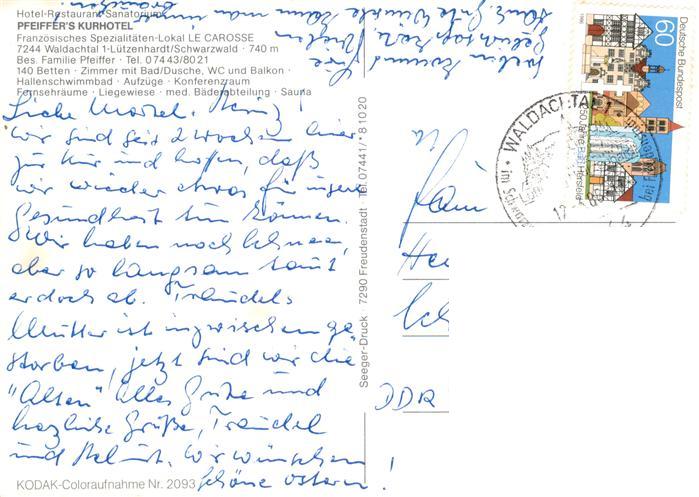 Hotel-Restaurant-Sanatorium
PFEIFFER'S KURHOTEL
Französisches Spezialitäten-Lokal LE CAROSSE
7244 Waldachtal 1-Lützenhardt/Schwarzwald · 740 m
Bes. Familie Pfeiffer · Tel. 07443/8021
140 Betten · Zimmer mit Bad/Dusche, WC und Balkon ·
Hallenschwimmbad · Aufzüge · Konferenzraum
Fernsehräume · Liegewiese · med. Bäderabteilung · Sauna
Liebe
wir sind seit 2 Wochen hier
zur Kur und hoffen, daß
wir wieder etwas für unsere
Gesundheit tun können.
Wir haben noch Schnee,
aber so langsam taut
er doch ab. Traudels
Mutter ist inzwischen ge-
storben, jetzt sind wir die
"Alten" alles Gute und
herzliche Grüße, Traudel
und Helmut. Wir wünschen
schöne Ostern!
KODAK-Coloraufnahme Nr. 2093
Seeger-Druck 7290 Freudenstadt Tel. 07441/*81020
Deutsche Bundespost
60
1250 Jahre Bad Hersfeld
1986
WALDACHTAL 1
DDR